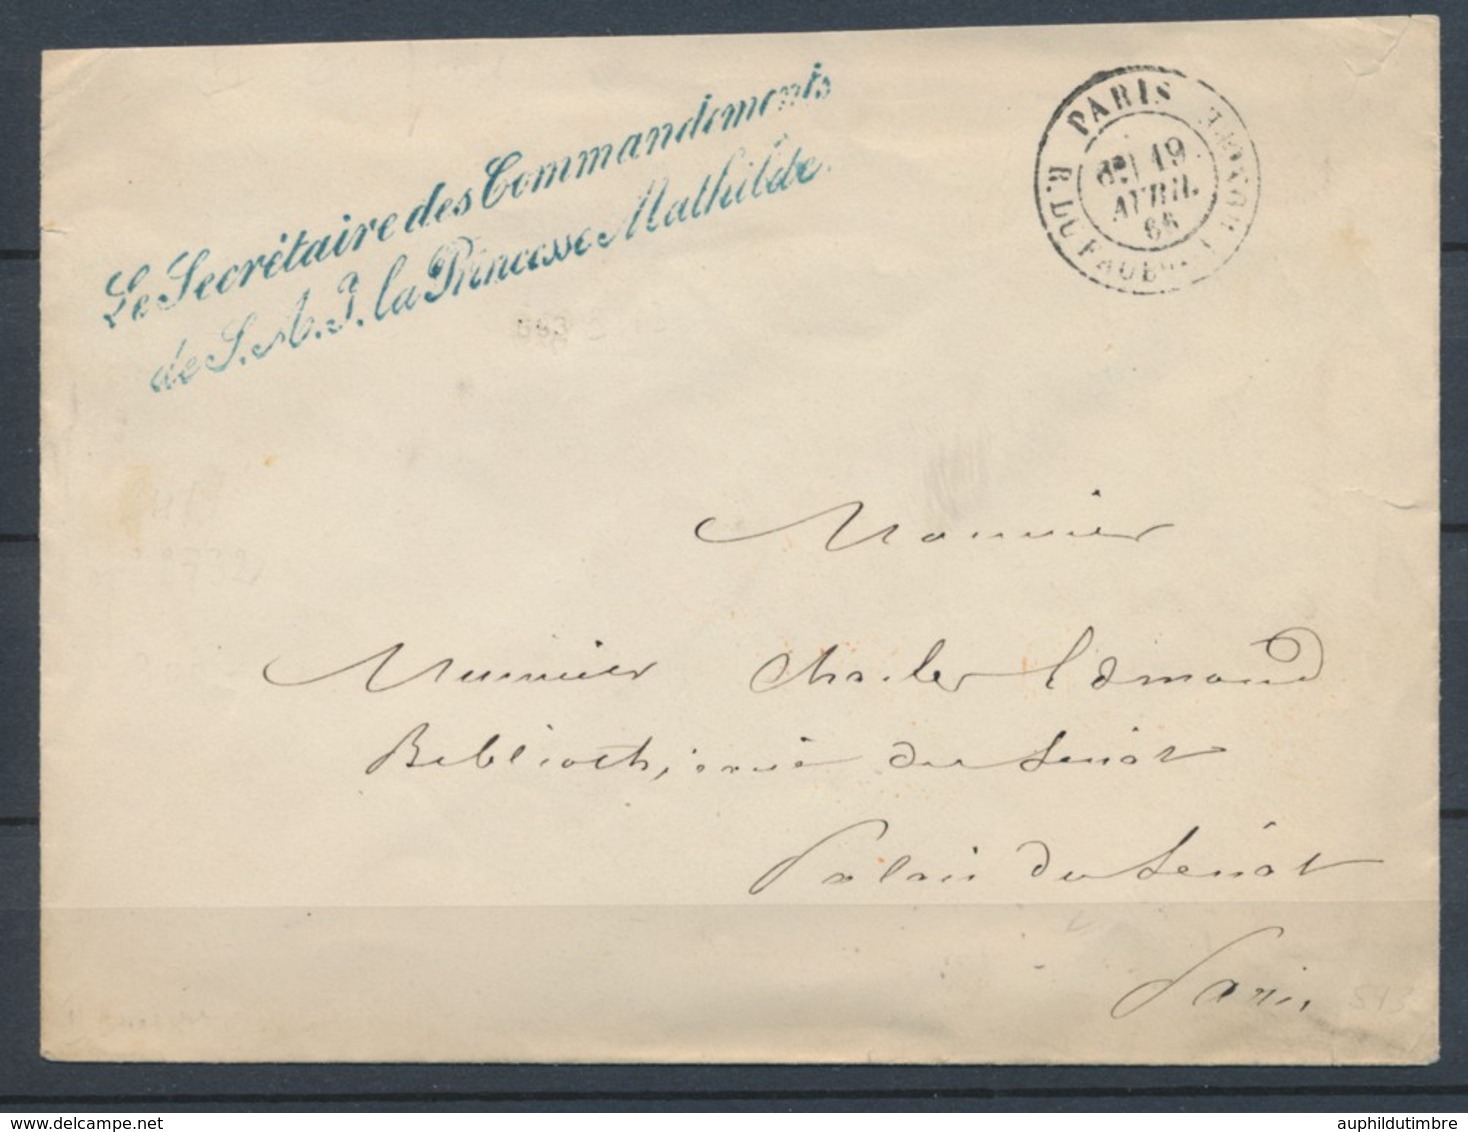 Le Secrétaire des Commandements
de S. A. I. la Princesse Mathilde.
PARIS
R. DU FAUBG ST HONORE
19
AVRIL
66
Monsieur
Monsieur Charles Edmond
Bibliothécaire du Sénat
Palais du Sénat
Paris
543
auphildutimbre